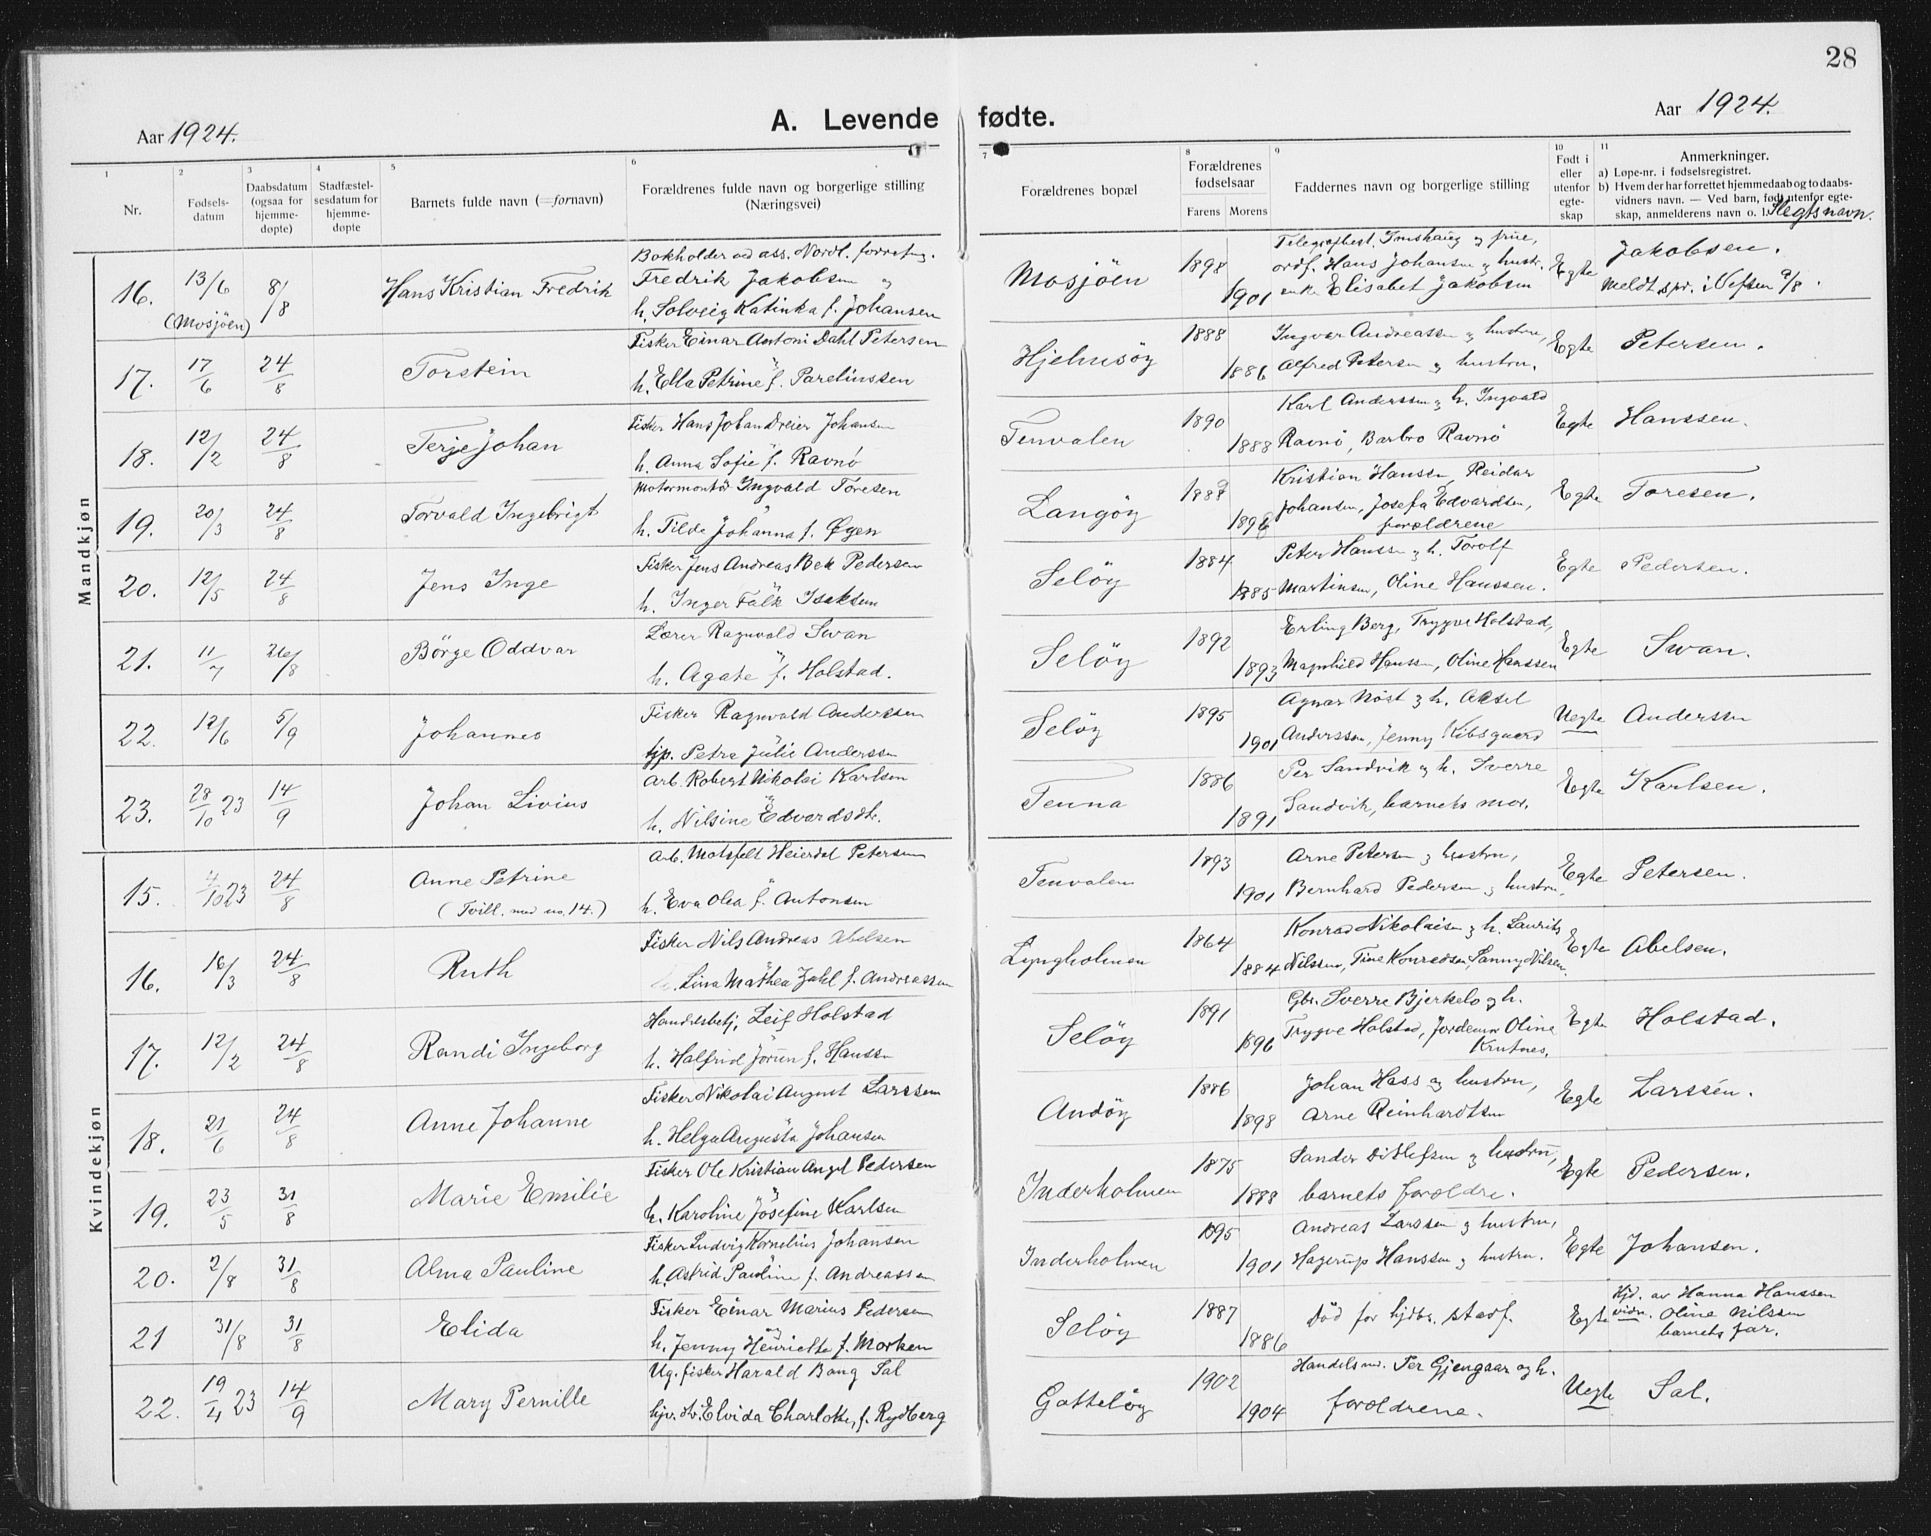 28
Aar 1924.
A. Levende fødte.
Aar 1924.
1 2 3 4 5 6 7 8 9 10 11
Nr.
Fødsels-
datum
Daabsdatum
(ogsaa for
hjemme-
døpte)
Stadfæstel-
sesdatum for
hjemme-
døpte
Barnets fulde navn (=fornavn)
Forældrenes fulde navn og borgerlige stilling
(Næringsvei)
Forældrenes bopæl
Forældrenes
fødselsaar
Farens Morens
Faddernes navn og borgerlige stilling
Født i
eller
utenfor
egte-
skap
Anmerkninger.
a) Løpe-nr. i fødselsregistret.
b) Hvem der har forrettet hjemmedaab og to daabs-
vidners navn. — Ved barn, født utenfor egte-
skap, anmelderens navn o. l. Slegtsnavn.
Mandkjøn
16. 13/6 8/8 Hans Kristian Fredrik Bokholder ved ass. Nordl. forretng.
(Mosjöen) Fredrik Jakobsen og
h. Solveig Katinka f. Johansen
Mosjöen 1898 1901 Telegrafbest. Imshaug og frue,
ordf. Hans Johansen og hustr.
enke Elisabet Jakobsen
Egte Jakobsen.
Meldt spr. i Vefsen 9/8.
17. 17/6 24/8 Torstein Fisker Einar Antoni Dahl Petersen
h. Ella Petrine f. Parelinssen
Hjelmsöy 1888 1886 Ingvar Andreassen og hustru,
Alfred Petersen og hustru.
Egte Petersen.
18. 12/2 24/8 Terje Johan Fisker Hans Johan Dreier Johansen
h. Anna Sofie f. Ravnø
Tenvalen 1890 1888 Karl Anderssen og h. Ingvald
Ravnø, Barbro Ravnø
Egte Hanssen.
19. 20/3 24/8 Torvald Ingebrigt Motormontör Ingvald Toresen
h. Tilda Johanna f. Øyen
Langöy Kristian Hanssen, Reidar
Johansen, Josefa Edvardsen,
forældrene
Egte Toresen.
20. 12/5 24/8 Jens Inge Fisker Jens Andreas Bek Pedersen
h. Inger Falk Isaksen
Selöy 1884 1885 Peter Hanssen og h. Torolf
Martinsen, Oline Hanssen.
Egte Pedersen.
21. 11/7 26/8 Börge Oddvar Lærer Ragnvald Swan
h. Agate f. Holstad.
Selöy 1892 1893 Erling Berg, Trygve Holstad,
Magnhild Hanssen, Oline Hanssen
Egte Swan.
22. 12/6 5/9 Johannes Fisker Ragnvald Anderssen
tjp. Petra Julie Anderssen
Selöy 1895 1901 Agnar Nöst og h. Aksel
Anderssen, Jenny Kibsgaard
Uegte Anderssen
23. 28/10 23 14/9 Johan Livius Arb. Robert Nikolai Karlsen
h. Nilsine Edvardsdtr.
Tenna 1886 1891 Per Sandvik og h. Sverre
Sandvik, barnets mor.
Egte Karlsen.
Kvindekjøn
15. 4/10 23 24/8 Anne Petrine Arb. Motsfelt Heierdal Petersen
(Tvill. med no. 14.) h. Eva Olea f. Antonsen
Tenvalen 1893 1901 Arne Petersen og hustru,
Bernhard Pedersen og hustru,
Egte Petersen.
16. 16/3 24/8 Ruth Fisker Nils Andreas Abelsen
h. Lina Mathea Zahl f. Andreassen
Lyngholmen 1864 1884 Konrad Nikolaisen og h. Laurits
Nilssen, Tine Konradsen, Sanny Nilsen.
Egte Abelsen.
17. 12/2 24/8 Randi Ingeborg Handelsbetj. Leif Holstad
h. Halfrid Jorun f. Hanssen
Selöy 1891 1896 Gbr. Sverre Bjerkelo og h.
Trygve Holstad, Jordemor Oline
Krutnes.
Egte Holstad.
18. 21/6 24/8 Anne Johanne Fisker Nikolai August Larssen
h. Helga Augusta Johansen
Andöy 1886 1898 Johan Hass og hustru,
Arne Reinhardtsen
Egte Larssen.
19. 23/5 31/8 Marie Emilie Fisker Ole Kristian Angel Pedersen
h. Karoline Josefine Karlsen
Inderholmen 1875 1888 Sander Ditlefsen og hustru,
barnets foreldre.
Egte Pedersen.
20. 2/8 31/8 Alma Pauline Fisker Ludvig Kornelius Johansen
h. Astrid Pauline f. Andreassen
Inderholmen 1895 1901 Andreas Larssen og hustru,
Hagerup Hanssen og hustru.
Egte Johansen.
21 31/8 31/8 Elida Fisker Einar Marius Pedersen
h. Jenny Henriette f. Morken
Selöy 1887 1886 Död for hjdbs. stadf.
Egte Hjd. av Hanna Hanssen
vidn. Oline Nilssen
barnets far.
22. 19/4 23 14/9 Mary Pernille Ug. fisker Harald Bang Sal
h. Elvida Charlotte, f. Rydberg
Gotteløy 1902 1904 Handelsm. Per Gjengaar og h.
foreldrene.
Uegte Sal.